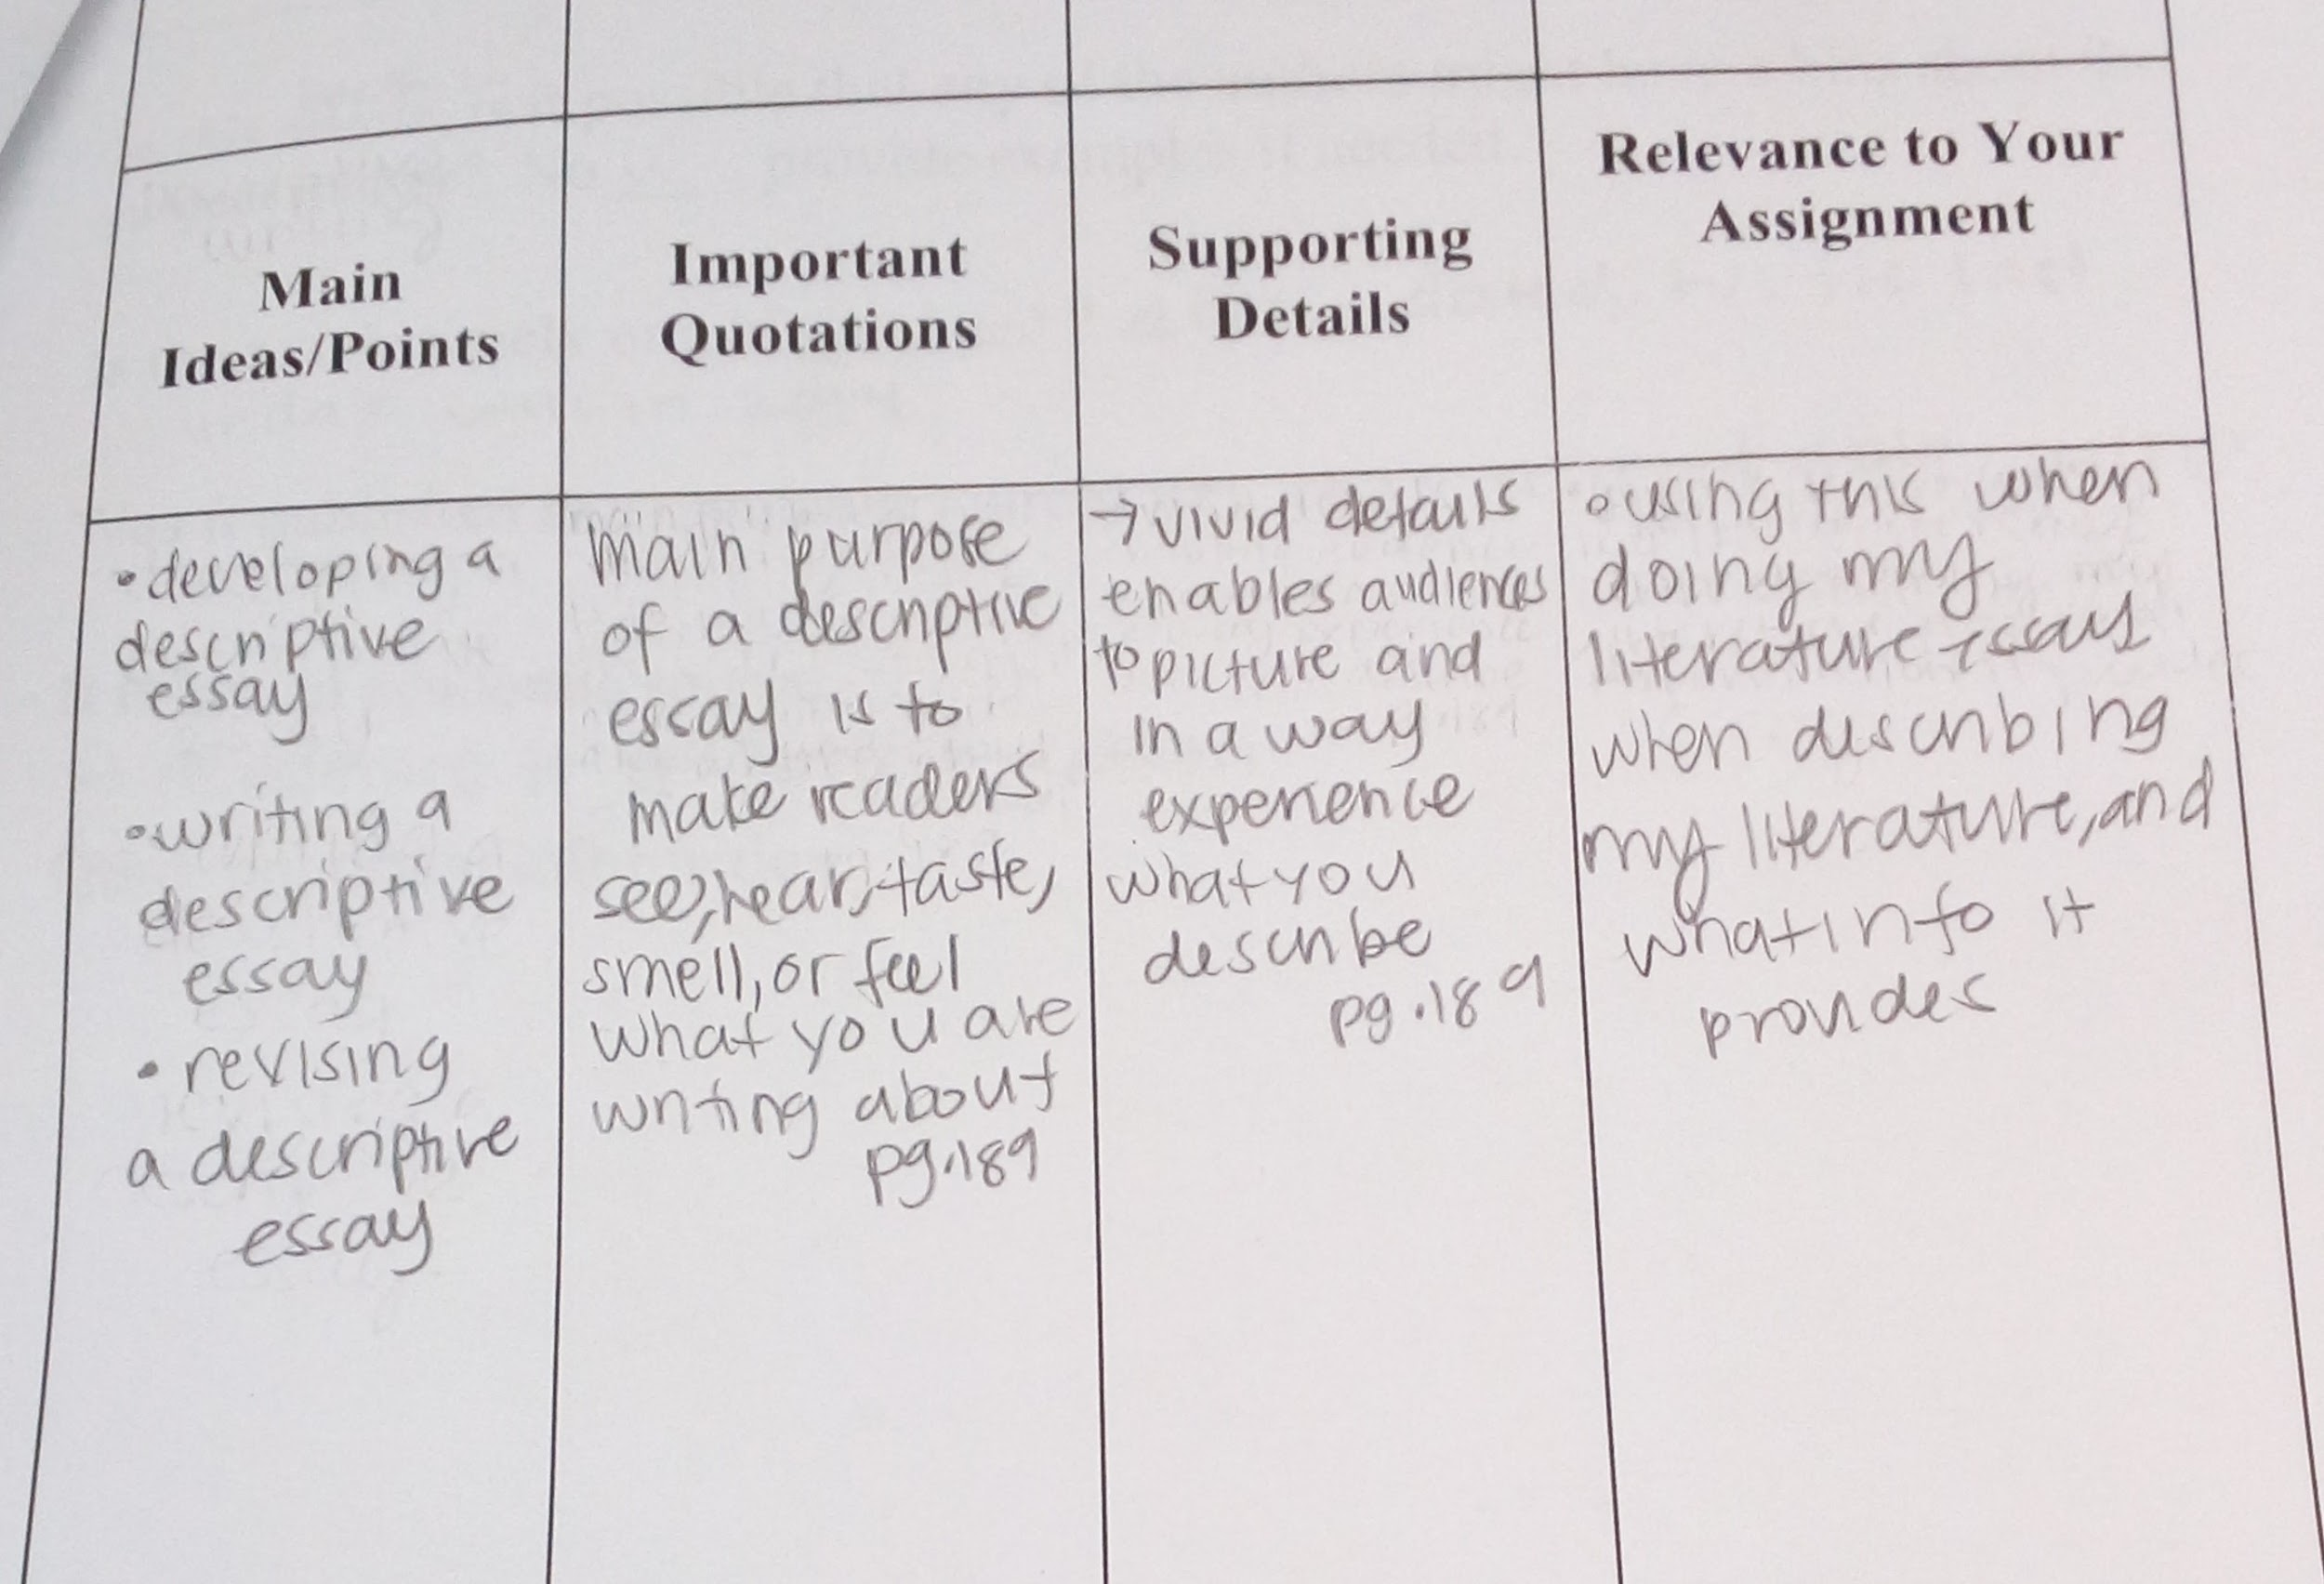 Main
Ideas/Points
Important
Quotations
Supporting
Details
Relevance to Your
Assignment
•developing a
descriptive
essay
•writing a
descriptive
essay
•revising
a descriptive
essay
main purpose
of a descriptive
essay is to
make readers
see, hear, taste,
smell, or feel
what you are
writing about
pg.189
→vivid details
enables audiences
to picture and
in a way
experience
what you
describe
pg.189
•using this when
doing my
literature essays
when describing
my literature, and
what info it
provides